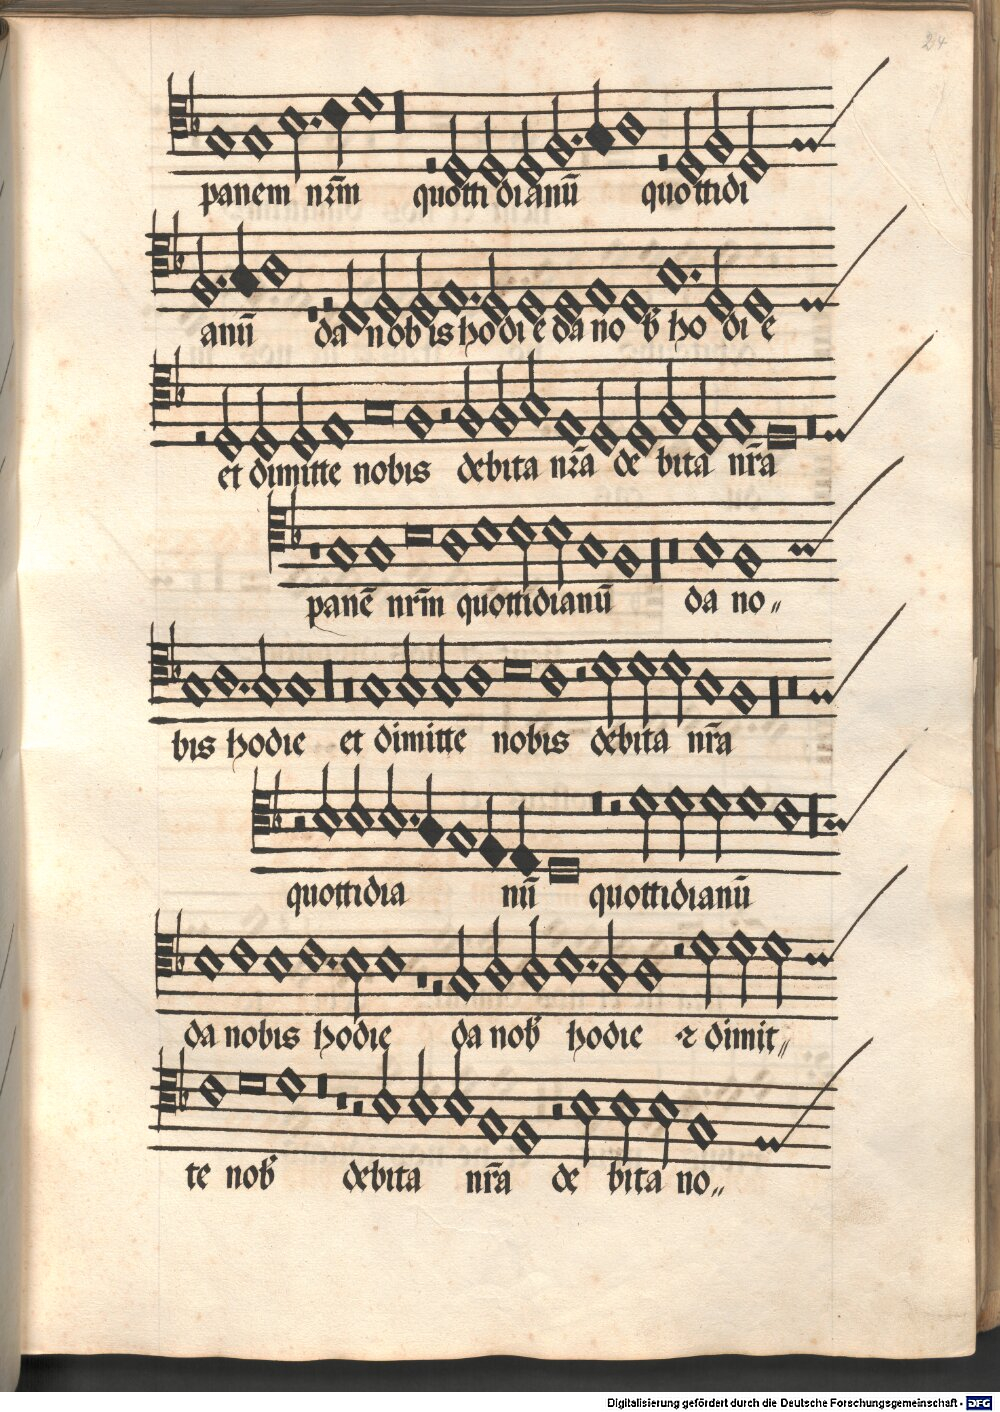 24
panem nr̄m quotti dianū quottidi
anū da nobis hodie da no b̾ ho die
et dimitte nobis debita nr̄a de bita nr̄a
panē nr̄m quottidianū da no〃
bis hodie et dimitte nobis debita nr̄a
quottidia nū quottidianū
da nobis hodie da nob̾ hodie ⁊ dimit〃
te nob̾ debita nr̄a de bita no〃
Digitalisierung gefördert durch die Deutsche Forschungsgemeinschaft - DFG